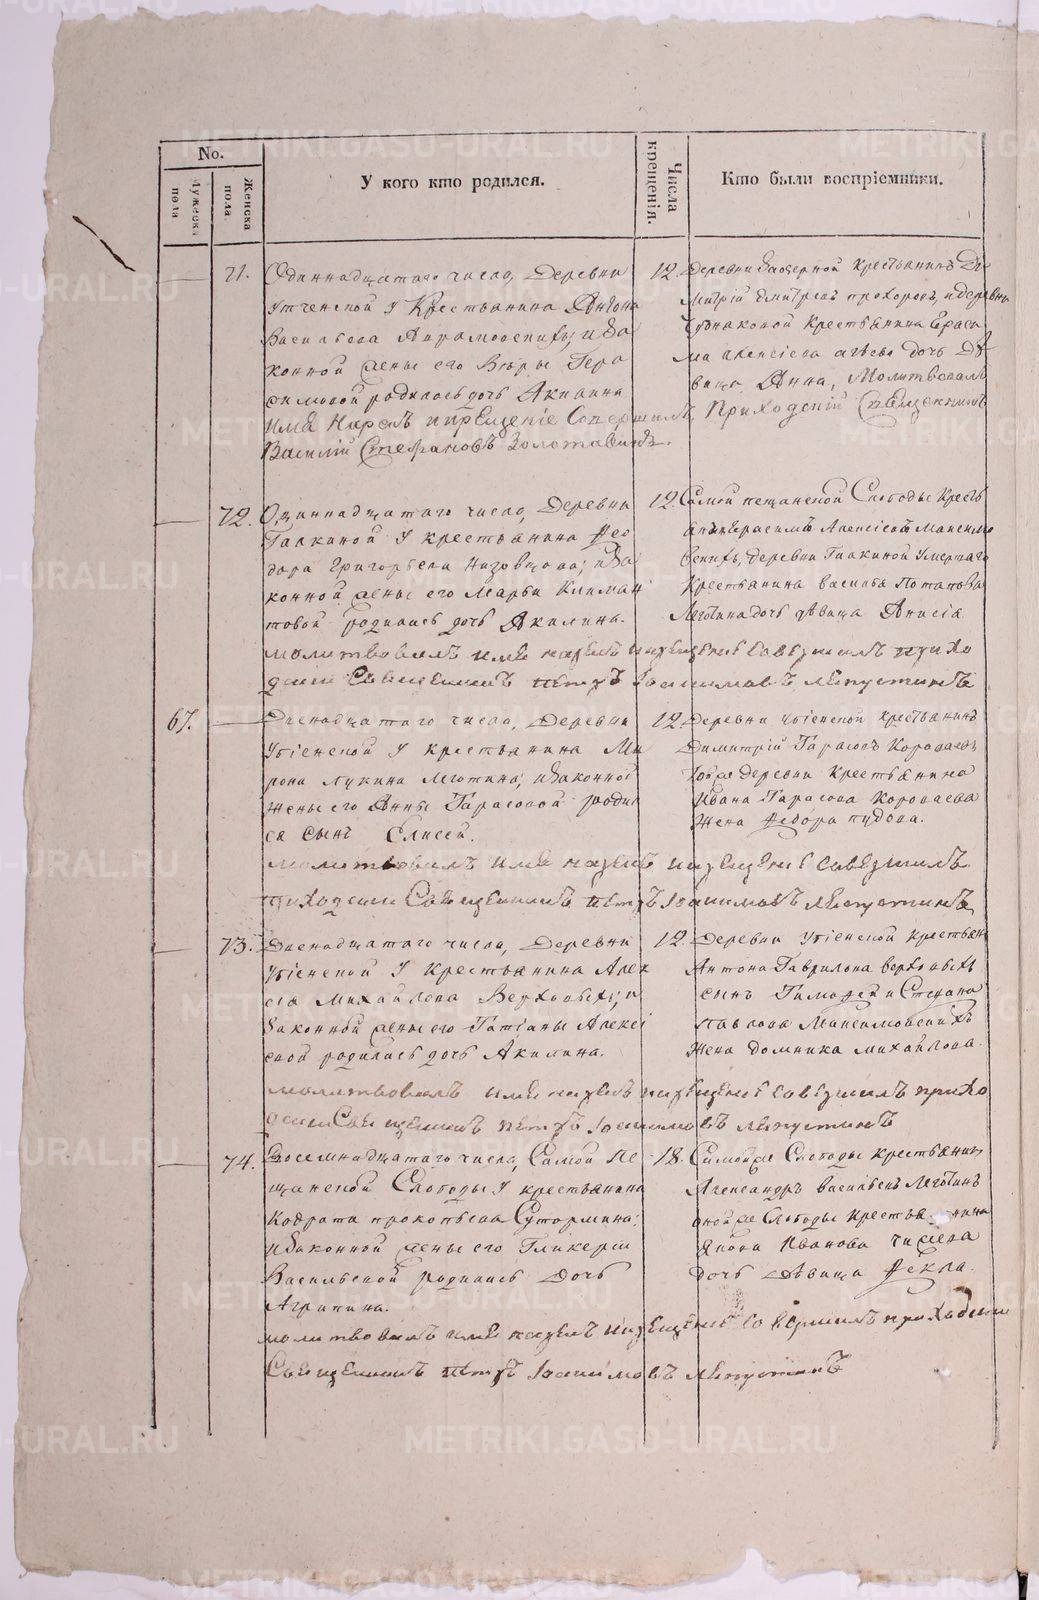 No.
Мужеска пола
Женска пола.
У кого кто родился.
Числа крещенія.
Кто были воспріемники.
71.
Одиннадцатаго числа, Деревни
у Крестьянина Антона
Васильева
конной жены его Вѣры Гера
симовой родилась дочь Акилина
имя нарекъ и крещеніе совершилъ Приходскій Священникъ
Василій Стефановъ Золотавинъ.
12. Деревни Озерной Крестьянинъ Ди
митрій Дмитріевъ Прохоровъ, и деревни
Крестьянина Ерасі
ма Алексіева дочь дѣ
вица Анна, Молитвовалъ
72.
Одиннадцатаго числа, Деревни
Галкиной у крестьянина Ѳео
дора Григорьева Низовцова; и за
конной жены его Марьи Климан
товой родилась дочь Акилина.
молитвовалъ имя нарекъ и крещеніе совершилъ прихо
дскій Священникъ Петръ Іоакимовъ Ляпустинъ
12. Самой Пещанской Слободы Кресть
янинъ Герасимъ Алексіевъ Максимо
вскихъ, деревни Галкиной умершаго
Крестьянина Василья Потапова
Леготина дочь дѣвица Анисія
67.
Двенадцатаго числа, Деревни
у крестьянина Ми
рона Лукина Леготина; и законной
жены его Анны Тарасовой роди
ся сынъ Елисей.
молитвовалъ имя нарекъ и крещеніе совершилъ
приходскій Священникъ Петръ Іоакимовъ Ляпустинъ
12. Деревни крестьянинъ
Димитрій Тарасовъ Короваевъ
той же деревни крестьянина
Ивана Тарасова Короваева
жена Ѳедора Пудова.
73.
Двенадцатаго числа, Деревни
у крестьянина Алек
сія Михайлова Верховыхъ; и
законной жены его Татіаны Алексі
евой родилась дочь Акилина.
молитвовалъ имя нарекъ и крещеніе совершилъ прихо
дскій Священникъ Петръ Іоакимовъ Ляпустинъ
12. Деревни крестьян
Антона Гаврилова Верховыхъ
сынъ Тимоѳей и Стефана
Павлова Максимовскихъ
жена Домника Михайлова.
74.
Восемнадцатаго числа, Самой Пе
щанской Слободы у крестьянина
Кодрата Прокопьева Сутормина;
и законной жены его Гликеріи
Васильевой родилась дочь
Агрипина.
молитвовалъ имя нарекъ и крещеніе совершилъ приходскій
Священникъ Петръ Іоакимовъ Ляпустинъ
18. Самой же Слободы крестьянинъ
Александръ Васильевъ Леготинъ
оной же Слободы крестьянина
Якова Иванова
дочь дѣвица Ѳекла.
METRIKI.GASU-URAL.RU